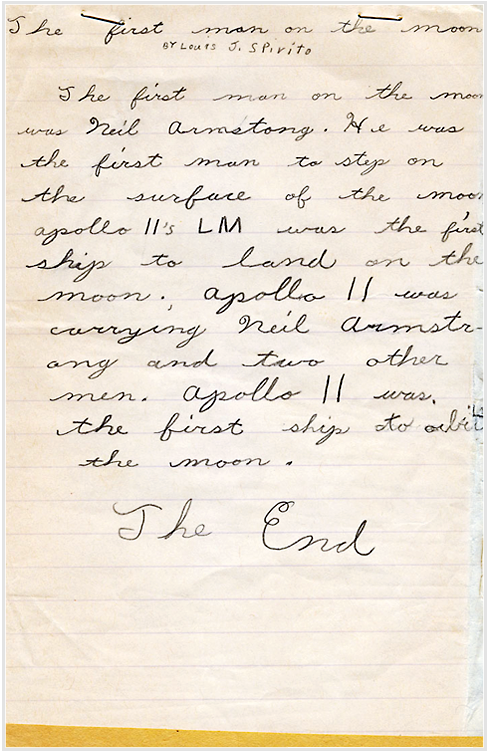 The first man on the moon
BY Louis J. SPirito
The first man on the moon
was Neil Armstong. He was
the first man to step on
the surface of the moon
apollo 11's LM was the first
ship to land on the
moon. apollo 11 was
carrying Neil Armstr-
ong and two other
men. apollo 11 was.
the first ship to orbit
the moon.
The End